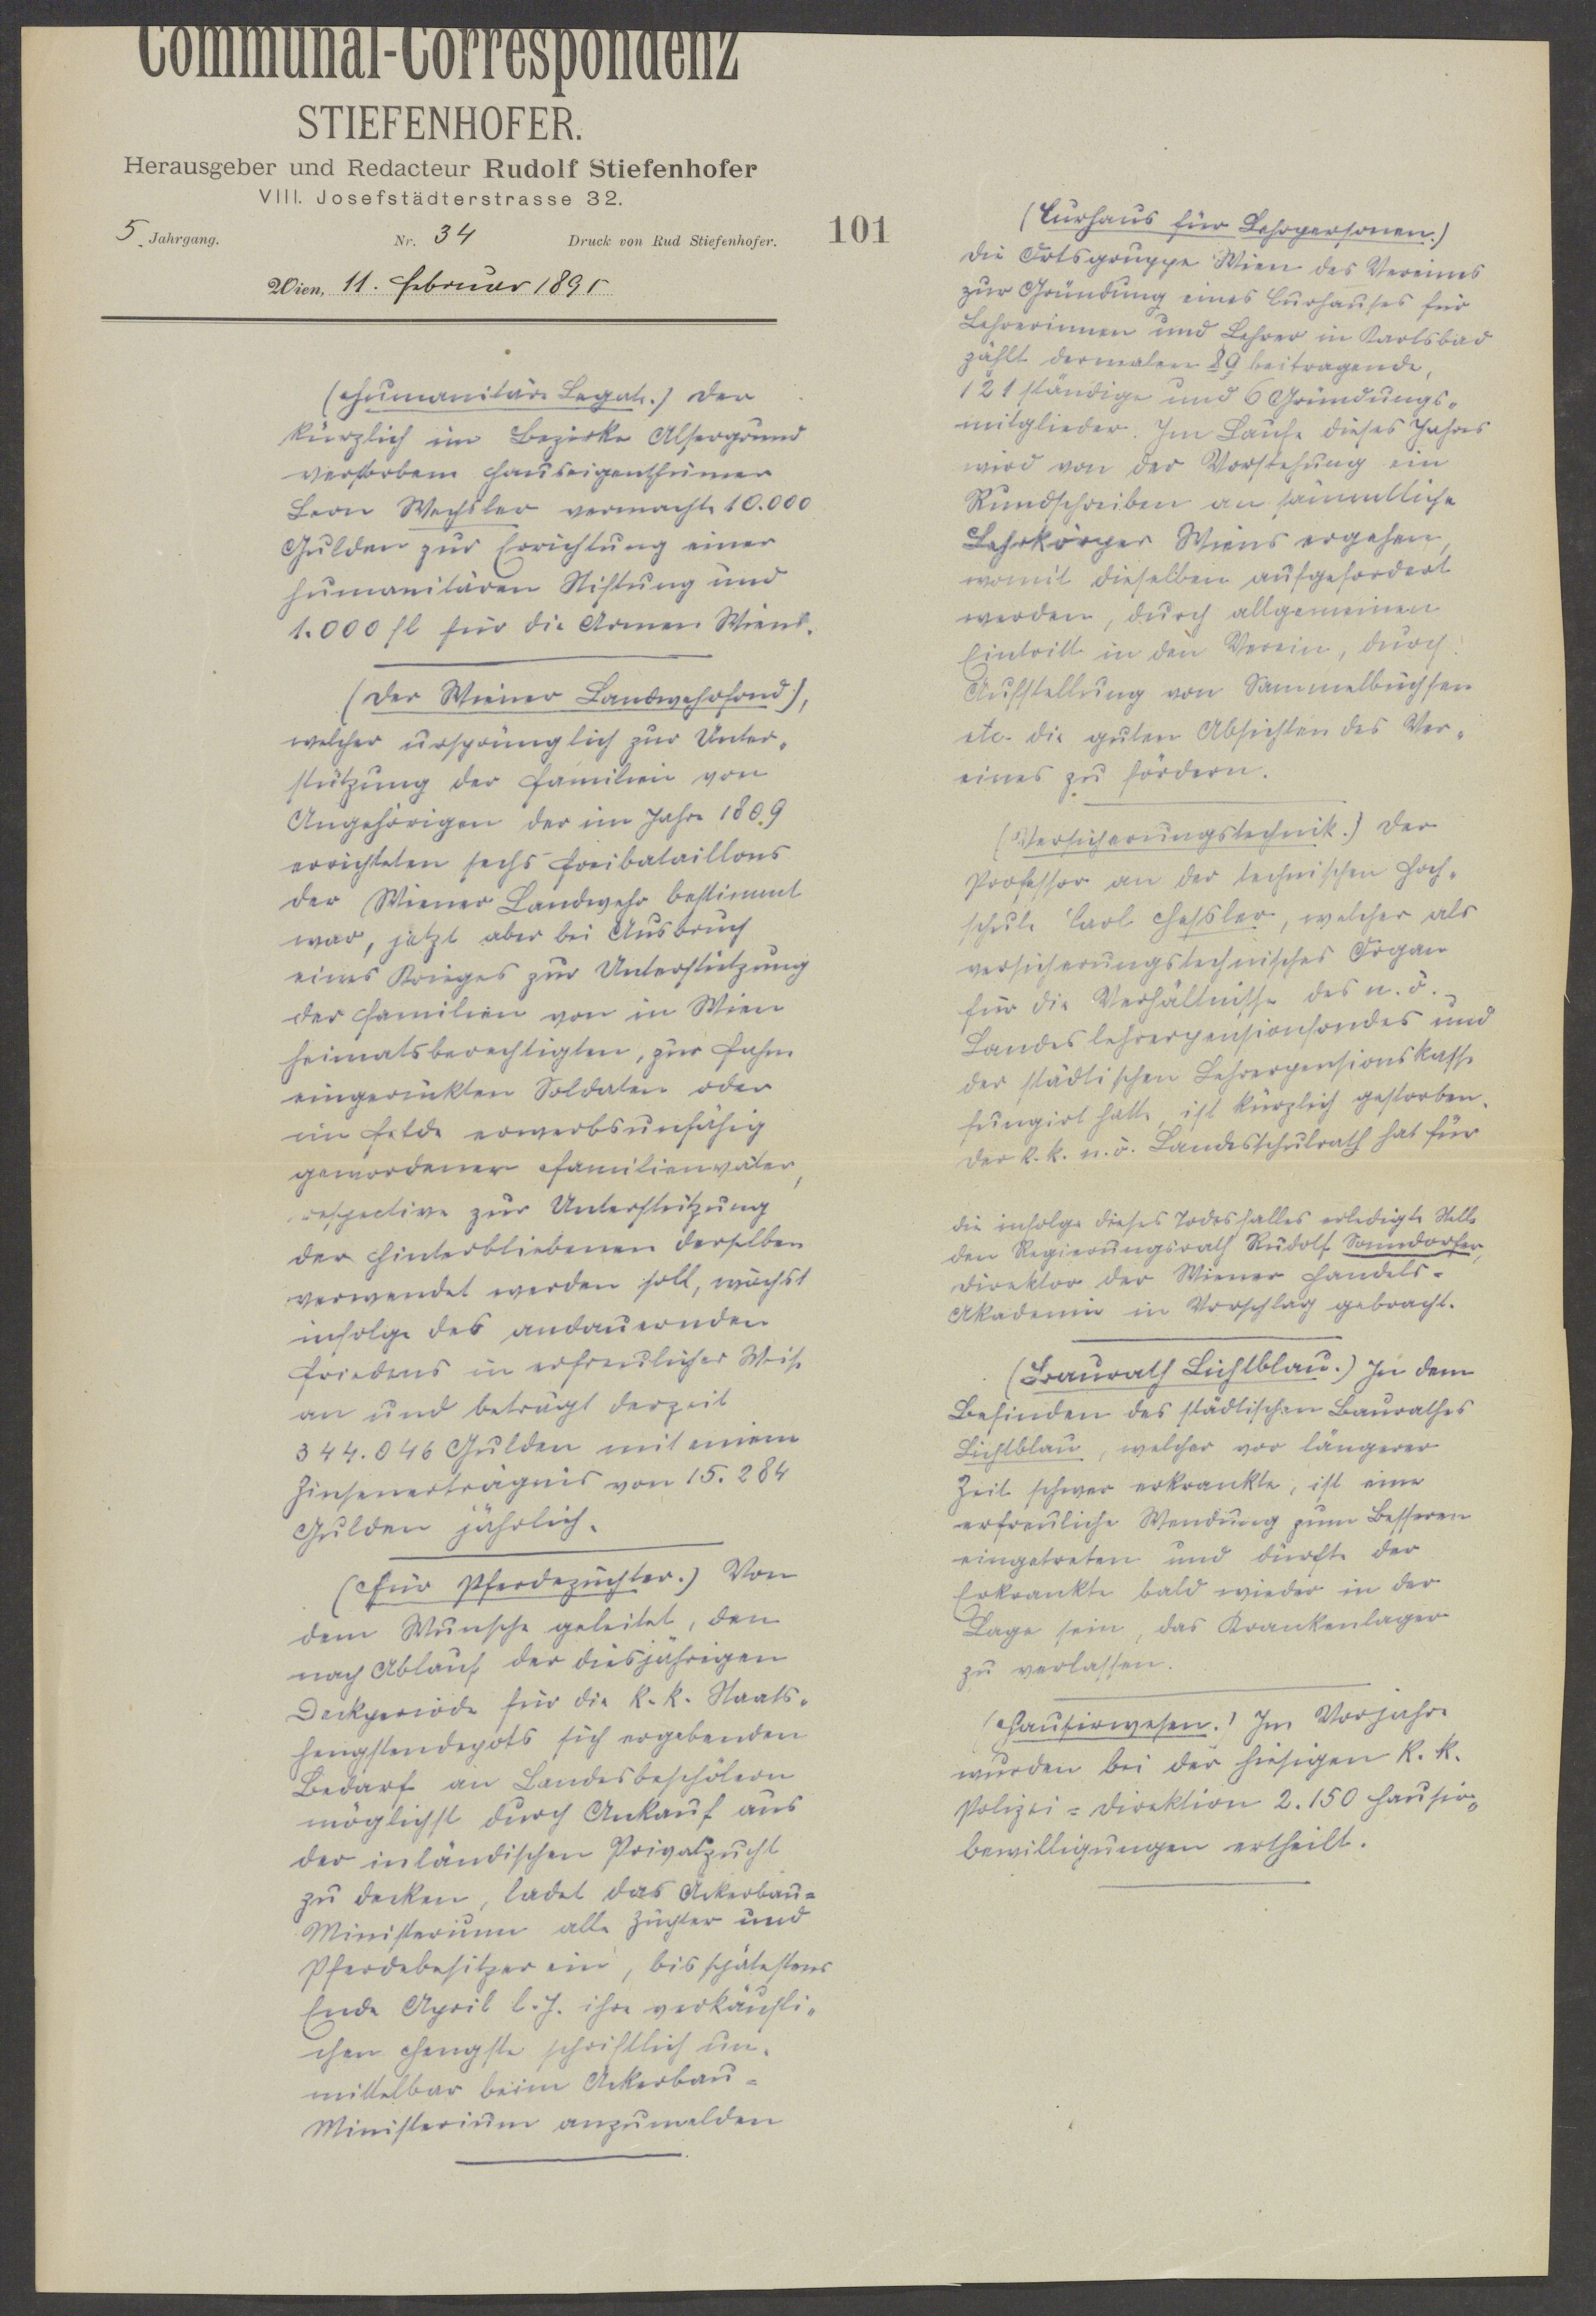 Communal-Correspondenz
STIEFENHOFER.
Herausgeber und Redacteur Rudolf Stiefenhofer
VIII. Josefstädterstrasse 32.
5. Jahrgang. Nr. 34 Druck von Rud Stiefenhofer.
Wien, 11. Februar 1895
101
(Humanitäre Legate.) Der
kürzlich im Bezirke Alsergrund
verstorbene Hauseigenthümer
Leon Wechsler vermachte 10.000
Gulden zur Errichtung einer
humanitären Stiftung und
1.000 fl für die Armen Wiens.
(Der Wiener Landwehrfond),
welcher ursprünglich zur Unter-
stützung der Familien von
Angehörigen der im Jahre 1809
errichteten sechs Freibataillons
der Wiener Landwehr bestimmt
war, jetzt aber bei Ausbruch
eines Krieges zur Unterstützung
der Familien von in Wien
heimatsberechtigten, zur Fahne
eingerückten Soldaten oder
im Felde erwerbsunfähig
gewordener Familienväter,
respective zur Unterstützung
der Hinterbliebenen derselben
verwendet werden soll, wächst
infolge des andauernden
Friedens in erfreulicher Weise
an und beträgt derzeit
344.046 Gulden mit einem
Zinsenerträgnis von 15.284
Gulden jährlich.
(Für Pferdezüchter.) Von
dem Wunsche geleitet, den
nach Ablauf der diesjährigen
Deckperiode für die k. k. Staats-
hengstendepots sich ergebenden
Bedarf an Landesbeschälern
möglichst durch Ankauf aus
der inländischen Privatzucht
zu decken, ladet das Ackerbau=
Ministerium alle Züchter und
Pferdebesitzer ein, bis spätestens
Ende April l. J. ihre verkäufli-
chen Hengste schriftlich un-
mittelbar beim Ackerbau=
Ministerium anzumelden
(Curhaus für Lehrpersonen.)
Die Ortsgruppe Wien des Vereines
zur Gründung eines Curhauses für
Lehrerinnen und Lehrer in Karlsbad
zählt dermalen 89 beitragende,
121 ständige und 6 Gründungs-
mitglieder. Im Laufe dieses Jahres
wird von der Vorstehung ein
Rundschreiben an sämmtliche
Lehrkörper Wiens ergehen,
womit dieselben aufgefordert
werden, durch allgemeinen
Eintritt in den Verein, durch
Aufstellung von Sammelbüchsen
etc. die guten Absichten des Ver-
eines zu fördern.
(Versicherungstechnik.) Der
Professor an der technischen Hoch-
schule Carl Hessler, welcher als
versicherungstechnisches Organ
für die Verhältnisse des n. ö.
Landeslehrerpensionsfondes und
der städtischen Lehrerpensionskasse
fungirt hatte, ist kürzlich gestorben.
Der k. k. n. ö. Landesschulrath hat für
die infolge dieses Todesfalles erledigte Stelle
den Regierungsrath Rudolf Sonndorfer,
Direktor der Wiener Handels=
Akademie in Vorschlag gebracht.
(Baurath Lichtblau.) In dem
Befinden des städtischen Baurathes
Lichtblau, welcher vor längerer
Zeit schwer erkrankte, ist eine
erfreuliche Wendung zum Besseren
eingetreten und dürfte der
Erkrankte bald wieder in der
Lage sein, das Krankenlager
zu verlassen.
(Hausirwesen.) Im Vorjahre
wurden bei der hiesigen k. k.
Polizei=Direktion 2.150 Hausir-
bewilligungen ertheilt.